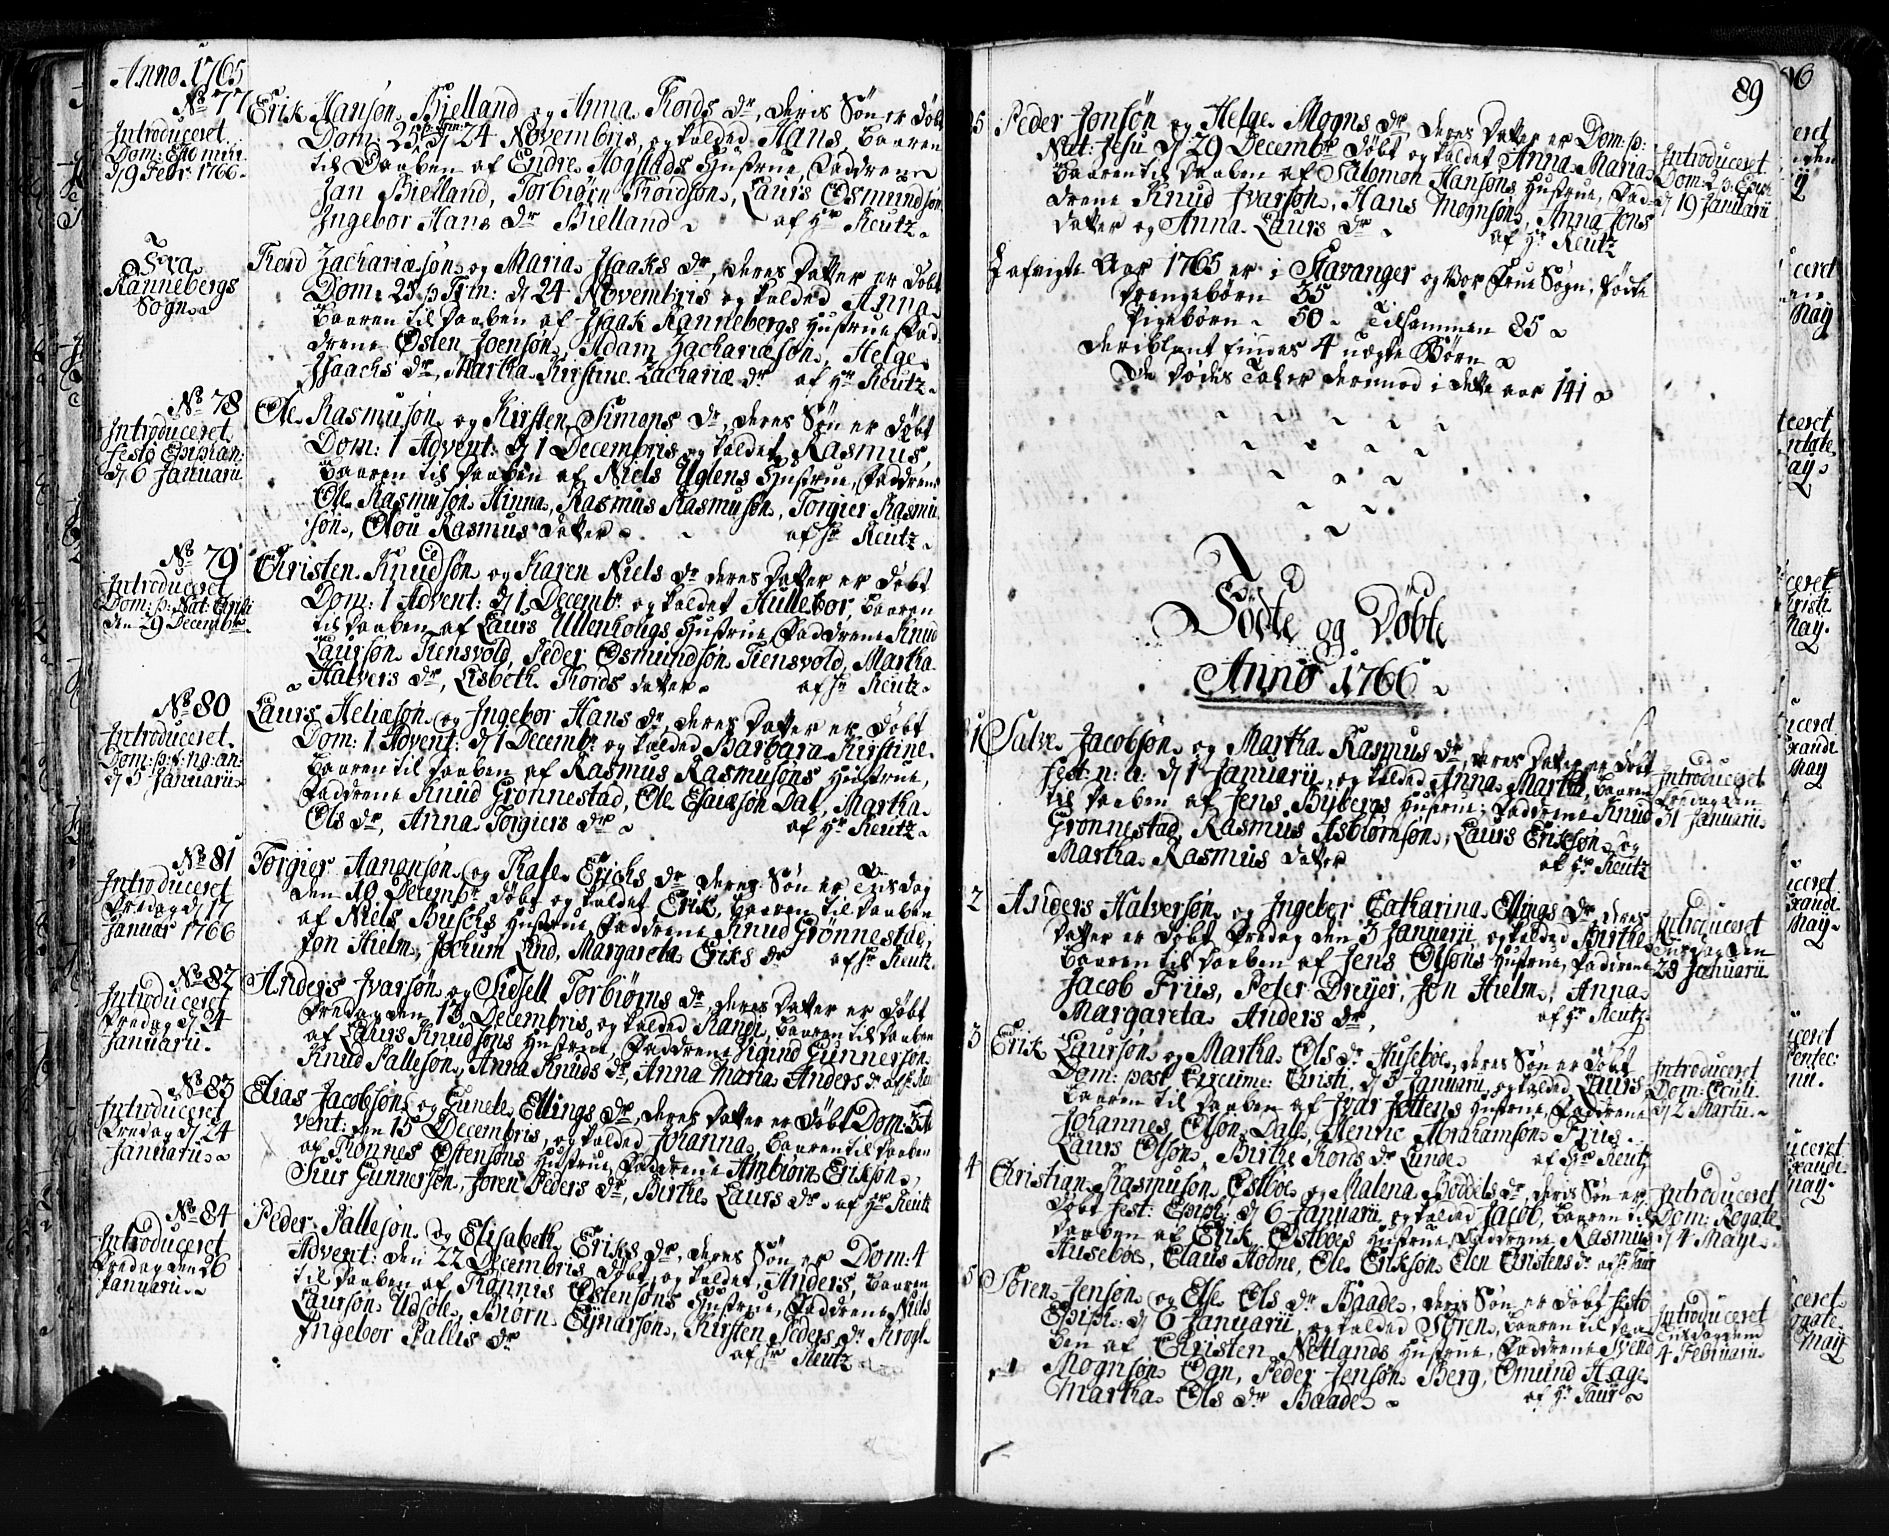 Anno 1765
No 77
Introduceret
Dom: Estomihi
d 9 Febr: 1766
Erik Hansøn Bielland og Anna Tords dr, deres Søn er døbt
Dom: 25 p: Trin: d 24 Novembris, og kalded Hans, baaren
til Daaben af Endre Hogstads Hustrue, Faddrene
Jan Bielland, Torbiørn Tordsøn, Laurs Osmundsøn
Ingebor Hans dr Bielland af Hr Reutz
Fra
Rannebergs
Sogn
Tord Zachariæsøn og Maria Isaaks dr, deres Datter er døbt
Dom: 25 p: Trin: d 24 Novembris og kalded Anna
baaren til Daaben af Isaak Rannebergs Hustrue, Fad-
drene Østen Joensøn, Adam Zachariæsøn, Helge
Isaachs dr, Martha Kirstine Zachariæ dr af Hr Reutz
No 78
Introduceret
Festo Epiphan:
d 6 Januarii
Ole Rasmusøn og Kirsten Simons dr, deres Søn er døbt
Dom: 1 Advent: d 1 Decembris og kaldet Rasmus,
baaren til Daaben af Niels Uglens Hustrue, Faddrene
Ole Rasmusøn Hinna, Rasmus Rasmusøn, Torgier Rasmu
søn, Olou Rasmus datter af Hr Reutz
No 79
Introduceret
Dom: p: Nat: Christi
den 29 Decembr
Christen Knudsøn og Karen Niels dr deres Datter er døbt
Dom: 1 Advent: d 1 Decembr og kaldet Hullebor, baaren
til Daaben af Laurs Ullenhougs Hustrue, Faddrene Knud
Laursøn Tiensvold, Peder Osmundsøn Tiensvold, Martha
Halvers dr, Lisbeth Tords datter af Hr Reutz
No 80
Introduceret
Dom: p: f: no: an:
d 5 Januarii
Laurs Heliæsøn og Ingebor Hans dr, deres Datter er døbt
Dom: 1 Advent: d 1 Decembr og kaldet Barbara Kirstine
baaren til Daaben af Rasmus Rasmusøns Hustrue,
Faddrene Knud Grønnestad, Ole Esaiæsøn Dal, Martha
Ols dr, Anna Torgiers dr af Hr Reutz
No 81
Introduceret
Fredag d 17
Januar 1766
Torgier Aanonsøn og Thale Erichs dr deres Søn er Tirsdag
den 10 Decembr døbt og kaldet Erik, baaren til Daaben
af Niels Buschs Hustrue, Faddrene Knud Grønnestad,
Jon Hielm, Jochum Lind, Margareta Eriks dr af Hr Reutz
No 82
Introduceret
Fredag d 24
Januarii
Anders Ivarsøn og Sidsell Torbiørns dr, deres Datter er døbt
Fredag den 13 Decembris, og kaldet Randi, baaren til Daaben
af Laurs Knudsøns Hustrue, Faddrene Sigind Gunnersøn
Knud Pallesøn, Anna Knuds dr, Anna Maria Anders dr af Hr Reu
No 83
Introduceret
Fredag d 24
Januarii
Elias Jacobsøn og Gunele Ellings dr, deres Datter er døbt Dom: 3 Ad
vent: den 15 Decembris, og kaldet Johanna, baaren til Daaben
af Tønnes Østensøns Hustrue, Faddrene Ambiørn Eriksøn,
Siur Gunnersøn, Joren Peders dr, Birthe Laurs dr af Hr Reutz
No 84
Introduceret
Fredag den 26
Januarii
Peder Pallesøn og Elisabeth Eriks dr, deres Søn er Dom: 4
Advent: den 22 Decembris døbt, og kaldet, Anders, baaren
til Daaben af Tønnis Østensøns Hustrue, Faddrene Niels
Laursøn Udsole, Biørn Eynarsøn, Kirsten Peders dr Krogh
Ingebor Pallis dr
af Hr Reutz
89
5 Peder Jonsøn og Helge Mogns dr, deres Datter er Dom: p:
Nat: Jesu d 29 Decembr døbt og kaldet Anna Maria
baaren til Daaben af Salomon Hansøns Hustrue, Fad-
drene Knud Ivarsøn, Hans Mognsøn, Anna Jons
datter og Anna Laurs dr af Hr Reutz
Introduceret
Dom: 2 p: Epiph:
d 19 Januarii
I afvigte Aar 1765 er i Stavanger og Vor Frue Sogn, fødte
Drengebørn 35
Pigebørn 50 Tilsammen 85
Deriblant findes 4 uægte Børn
De Dødes Tal er derimod i dette aar 141
Fødte og Døbte
Anno 1766
1 Salve Jacobsøn og Martha Rasmus dr, deres Datter er døbt
Fest: n: a: d 1 Januarii, og kaldet Anna Martha, baaren
til Daaben af Jens Bybergs Hustrue, Faddrene Knud
Grønnestad, Rasmus Asbiørnsøn, Laurs Eriksøn og
Martha Rasmus datter af Hr Reutz
Introduceret
Fredag den
31 Januarii
2 Anders Halversøn og Ingebor Catharina Ellings dr, deres
Datter er døbt Fredag den 3 Januarii, og kaldet Birthe
baaren til Daaben af Jens Olsøns Hustrue, Faddrene
Jacob Friis, Peter Dreyer, Jon Hielm, Anna
Margareta Anders dr, af Hr Reutz
Introduceret
Tirsdag den
28 Januarii
3 Erik Laursøn og Martha Ols dr Husebøe, deres Søn er døbt
Dom: post Circume: Christi, d 5 Januarii, og kaldet Laurs
baaren til Daaben af Ivar Jøttens Hustrue, Faddrene
Johannes Olsøn Dale, Henric Abrahamsøn Friis
Laurs Olsøn, Birthe Tords dr Lunde af Hr Reutz
Introduceret
Dom: Oculi
d 2 Martii
4 Christian Rasmusøn Østbøe og Malena Boddels dr, deres Søn er
døbt Fest: Epiph: d 6 Januarii og kaldet Jacob, baaren til
Daaben af Erik Østbøes Hustrue, Faddrene Rasmus
Husebøe, Claus Hodne, Ole Eriksøn, Elen Christens dr af Hr Taur
Introduceret
Dom: Rogate
d 4 Maji
5 Søren Jensøn og Else Ols dr Baade, deres Søn er døbt Festo
Epiph: d 6 Januarii, og kaldet Søren, baaren til Daa-
ben af Christen Netlands Hustrue, Faddrene Svend
Mognsøn Ogn, Peder Jensøn Berg, Omund Hage
Martha Ols dr Baade af Hr Taur
Introduceret
Tirsdag den
4 Februarii